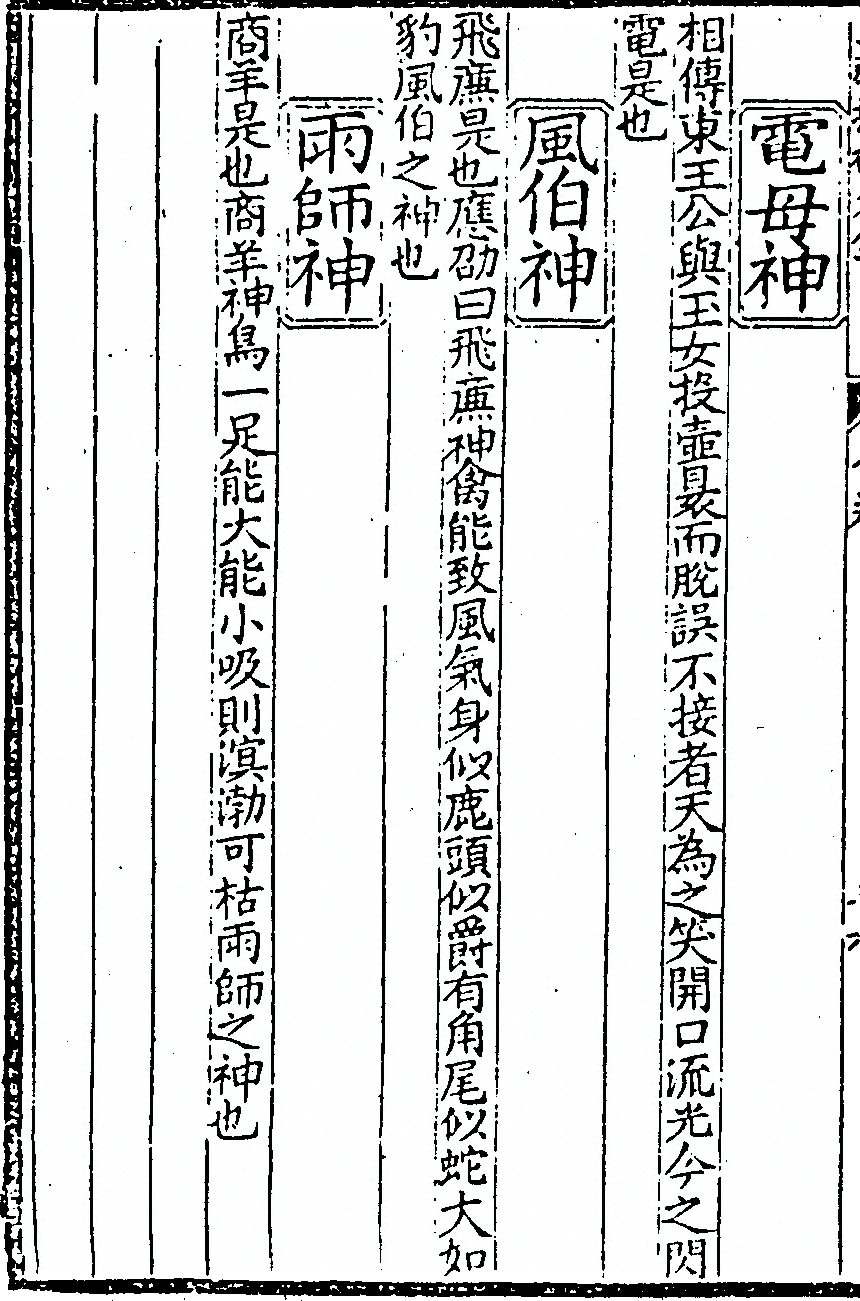 電母神
相傳東王公與玉女投壺㠯而脫誤不接者天為之笑開口流光今之閃
電是也
風伯神
飛廉是也應劭曰飛廉神禽能致風氣身似鹿頭似爵有角尾似蛇大如
豹風伯之神也
雨師神
商羊是也商羊神鳥一足能大能小吸則溟渤可枯雨師之神也